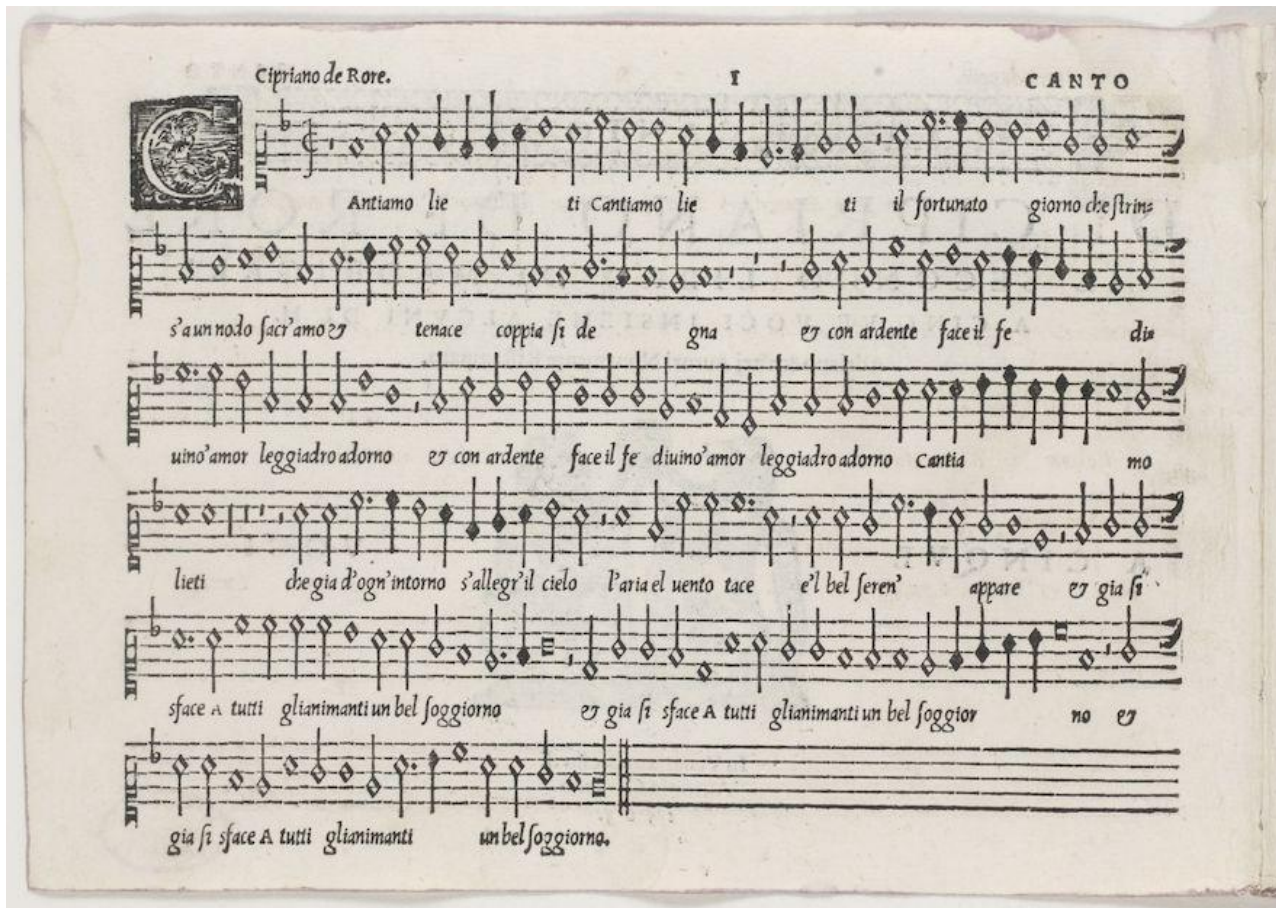 Cipriano de Rore. I CANTO
CAntiamo lie ti Cantiamo lie ti il fortunato giorno che strin=
s'a un nodo sacr'amo & tenace coppia si de gna & con ardente face il fe di=
uino'amor leggiadro adorno & con ardente face il fe diuino'amor leggiadro adorno Cantia mo
lieti che gia d'ogn'intorno s'allegr'il cielo l'aria el uento tace e'l bel seren' appare & gia si
sface A tutti glianimanti un bel soggiorno & gia si sface A tutti glianimanti un bel soggior no &
gia si sface A tutti glianimanti un bel soggiorno.